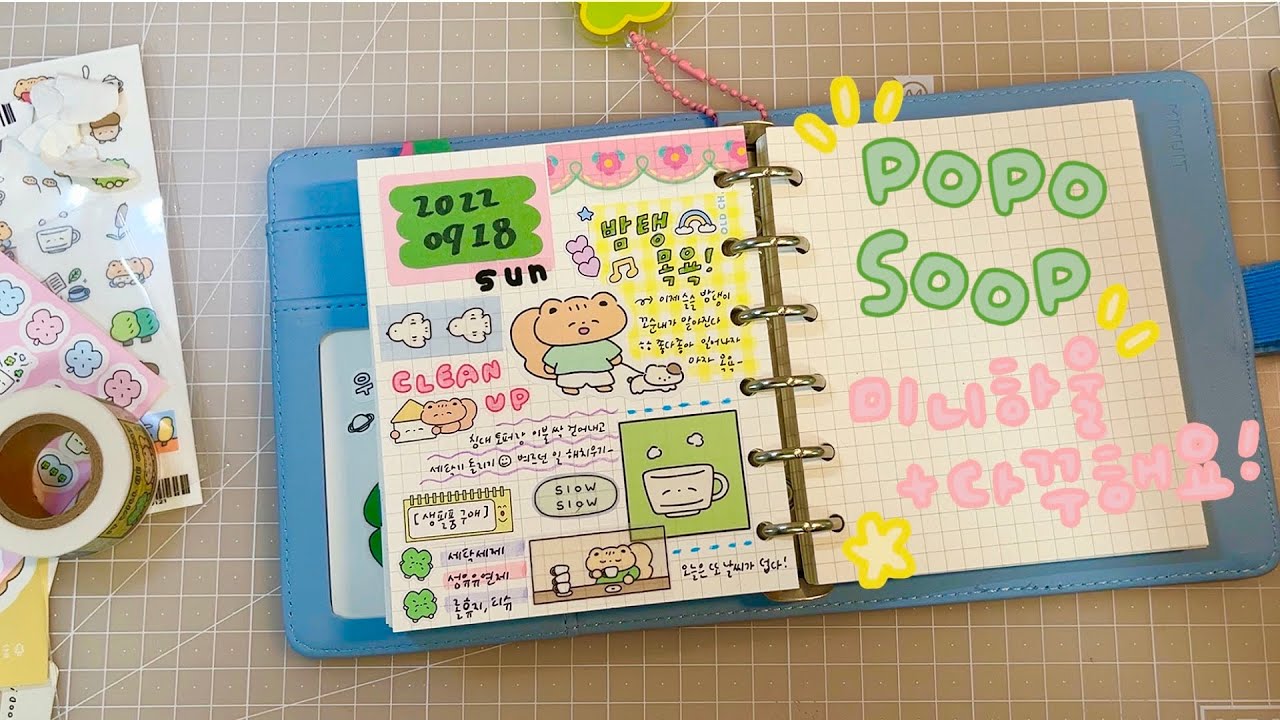 2022
0918
sun
OLD CH
밤탱
목욕!
이제 슬슬 밤탱이
꼬순내가 많아진다
좋다좋아 일어나자
마자 목욕~
CLEAN
UP
침대 토퍼랑 이불 싹 걷어내고
세탁기 돌리기 벼르던 일 해치우기~
SLOW
SLOW
[생필품 구매]
세탁세제
섬유유연제
롤휴지, 티슈
오늘은 또 날씨가 덥다!
POPO
SOOP
미니하울
+다꾸해요!